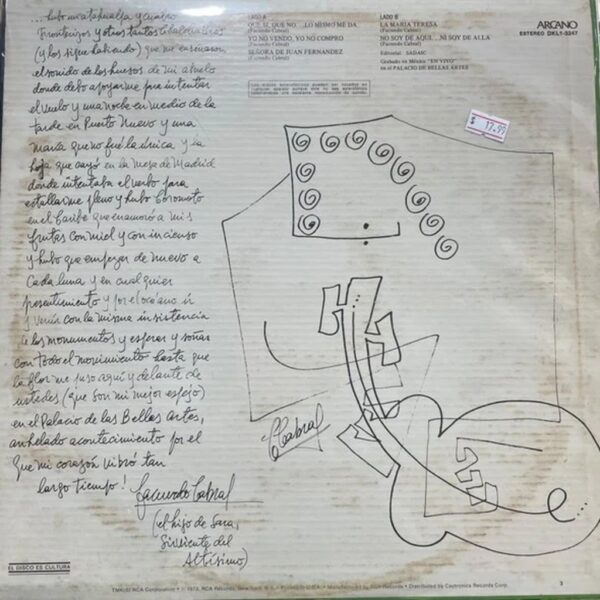 ...hubo un atahualpa y cuatro
fronterizos y otros tantos chalchaleros
(y los sigue habiendo) que me enseñaron
el sonido de los huesos de mi abuelo
donde debo apoyarme para intentar
el vuelo y una noche en medio de la
tarde en Puerto Nuevo y una
maría que no fué la única y la
hoja que cayó en la mesa de Madrid
donde intentaba el verbo para
estallarme pleno y hubo
en el Caribe que enamoró a mis
frutas con miel y con incienso
y hubo que empezar de nuevo a
cada luna y en cualquier
presentimiento y por el océano ir
y venir con la misma insistencia
de los monumentos y esperar y soñar
con todo el movimiento hasta que
la flor me puso aquí y delante de
ustedes (que son mi mejor espejo)
en el Palacio de las Bellas Artes,
anhelado acontecimiento por el
que mi corazón vibró tan
largo tiempo! Facundo Cabral
(el hijo de Sara,
Sirviente del
Altísimo)
LADO A
QUE SI, QUE NO... LO MISMO ME DA
(Facundo Cabral)
YO NO VENDO, YO NO COMPRO
(Facundo Cabral)
SEÑORA DE JUAN FERNANDEZ
(Facundo Cabral)
LADO B
LA MARIA TERESA
(Facundo Cabral)
NO SOY DE AQUI... NI SOY DE ALLA
(Facundo Cabral)
Editorial: SADAIC
Grabado en México "EN VIVO"
en el PALACIO DE BELLAS ARTES
ARCANO
ESTEREO DKL1-3347
$ 17.99
FCabral
EL DISCO ES CULTURA
TMK(s) RCA Corporation • © 1975, RCA Records, New York, N.Y. • Printed in U.S.A. • Manufactured by RCA Records • Distributed by Caytronics Records Corp.
3